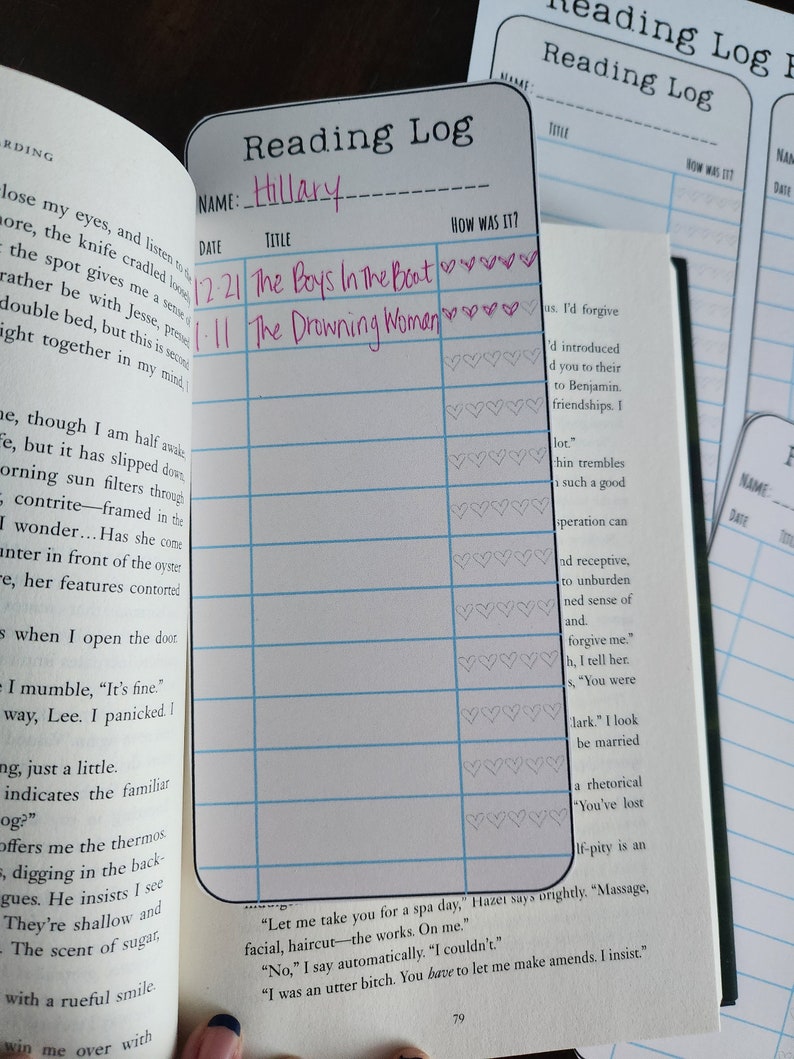 ARDING
close my eyes, and listen to the
more, the knife cradled loosely
the spot gives me a sense of
rather be with Jesse, pressed
double bed, but this is second
right together in my mind, I
me, though I am half awake,
fe, but it has slipped down,
orning sun filters through
, contrite—framed in the
I wonder…Has she come
unter in front of the oyster
re, her features contorted
s when I open the door.
I mumble, “It’s fine.”
way, Lee. I panicked. I
ng, just a little.
indicates the familiar
og?”
offers me the thermos.
s, digging in the back-
gues. He insists I see
They’re shallow and
. The scent of sugar,
with a rueful smile.
win me over with
Reading Log
NAME: Hillary
DATE TITLE HOW WAS IT?
12·21 The Boys In The Boat
1·11 The Drowning Woman
us. I’d forgive
’d introduced
d you to their
to Benjamin.
friendships. I
lot.”
hin trembles
such a good
speration can
nd receptive,
to unburden
ned sense of
and.
forgive me.”
h, I tell her.
s, “You were
lark.” I look
be married
a rhetorical
“You’ve lost
lf-pity is an
“Let me take you for a spa day,” Hazel says brightly. “Massage,
facial, haircut—the works. On me.”
“No,” I say automatically. “I couldn’t.”
“I was an utter bitch. You have to let me make amends. I insist.”
79
Reading Log
Reading Log
NAME:
TITLE HOW WAS IT?
NAM
DATE
NAME:
DATE